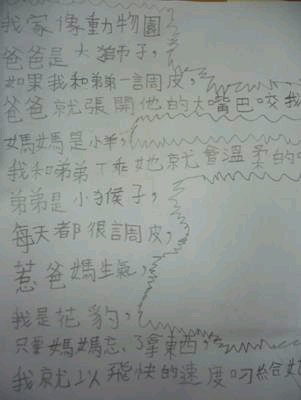 我家像動物園
爸爸是大獅子，
如果我和弟弟一調皮，
爸爸就張開他的大嘴巴咬我
媽媽是小羊，
我和弟弟不乖她就會溫柔的
弟弟是小猴子，
每天都很調皮，
惹爸媽生氣，
我是花豹，
只要媽媽忘了拿東西，
我就以飛快的速度叼給媽